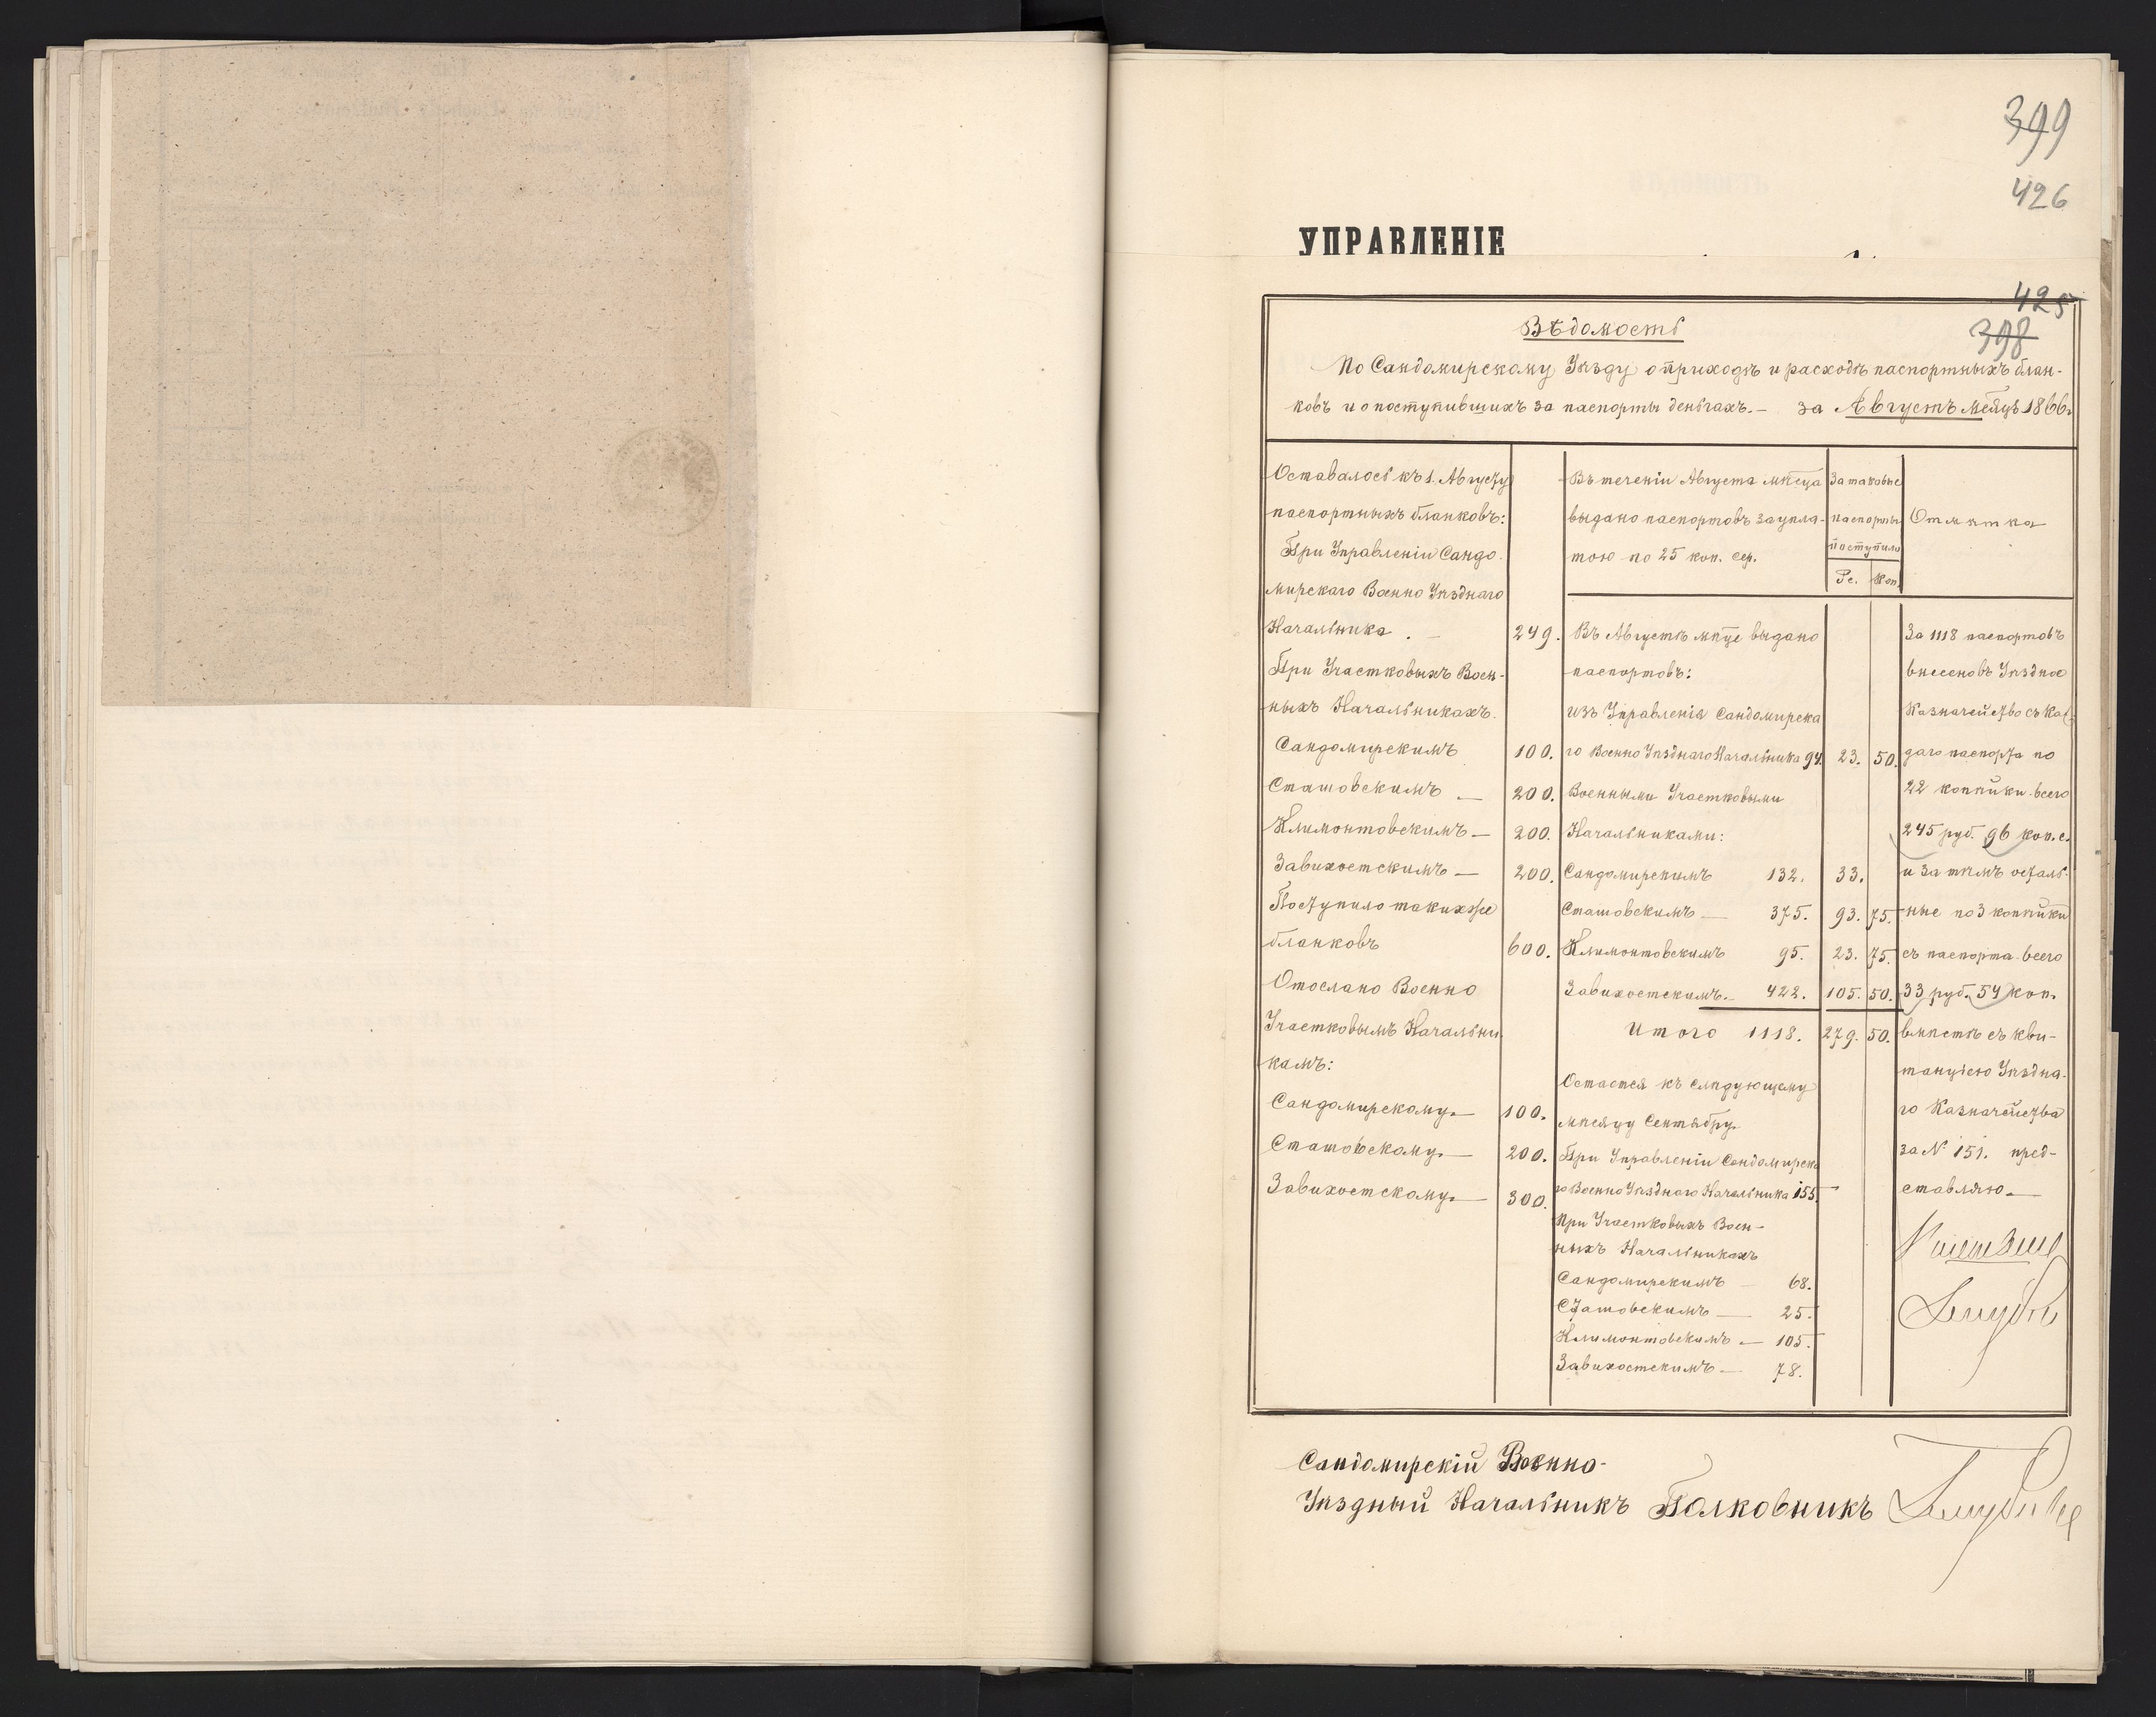 399
426
УПРАВЛЕНІЕ
425
398
Вѣдомость
По Сандомирскому Уѣзду о приходѣ и расходѣ паспортныхъ блан-
ковъ и о поступившихъ за паспорты деньгахъ. — за Августъ мѣсяцъ 1866
Оставалось къ 1. Августу
паспортныхъ бланковъ:
При Управленіи Сандо-
мирскаго Военно Уѣзднаго
Начальника . — 249.
При Участковыхъ Воен-
ныхъ Начальникахъ.
Сандомирскимъ 100.
Сташовскимъ — 200.
Климонтовскимъ — 200.
Завихостскимъ — 200.
Поступило такихже
бланковъ 600.
Отослано Военно
Участковымъ Начальни-
камъ:
Сандомирскому — 100.
Сташовскому — 200.
Завихостскому — 300.
Въ теченіи Августа мѣсца
выдано паспортовъ за упла-
тою по 25 коп. сер.
Въ Августѣ мѣце выдано
паспортовъ:
изъ Управленія Сандомирска
го Военно Уѣзднаго Начальника 94. 23. 50.
Военными Участковыми
Начальниками:
Сандомирскимъ 132. 33.
Сташовскимъ — 375. 93. 75.
Климонтовскимъ 95. 23. 75.
Завихостскимъ. — 422. 105. 50.
Итого 1118. 279. 50.
Остается къ слѣдующему
мѣсяцу Сентябру
При Управленіи Сандомирска
го Военно Уѣзднаго Начальника 155.
При Участковыхъ Воен-
ныхъ Начальникахъ
Сандомирскимъ — 68.
Сташовскимъ — 25.
Климонтовскимъ — 105.
Завихостскимъ — 78.
За таковые
паспорты
поступило
Рс. Коп.
Отмѣтка
За 1118 паспортовъ
внесеновъ Уѣздное
Казначейство съ каж
даго паспорта по
22 копѣйки всего
245 руб. 96 коп. с.
и за тѣмъ осталь-
ные по 3 копѣйки
съ паспорта всего
33 руб. 54 коп.
вмѣстѣ съ кви-
танціею Уѣздна-
го Казначейства
за N 151. пред-
ставляю. —
Сандомирскій Военно-
Уѣздный Начальникъ Полковникъ